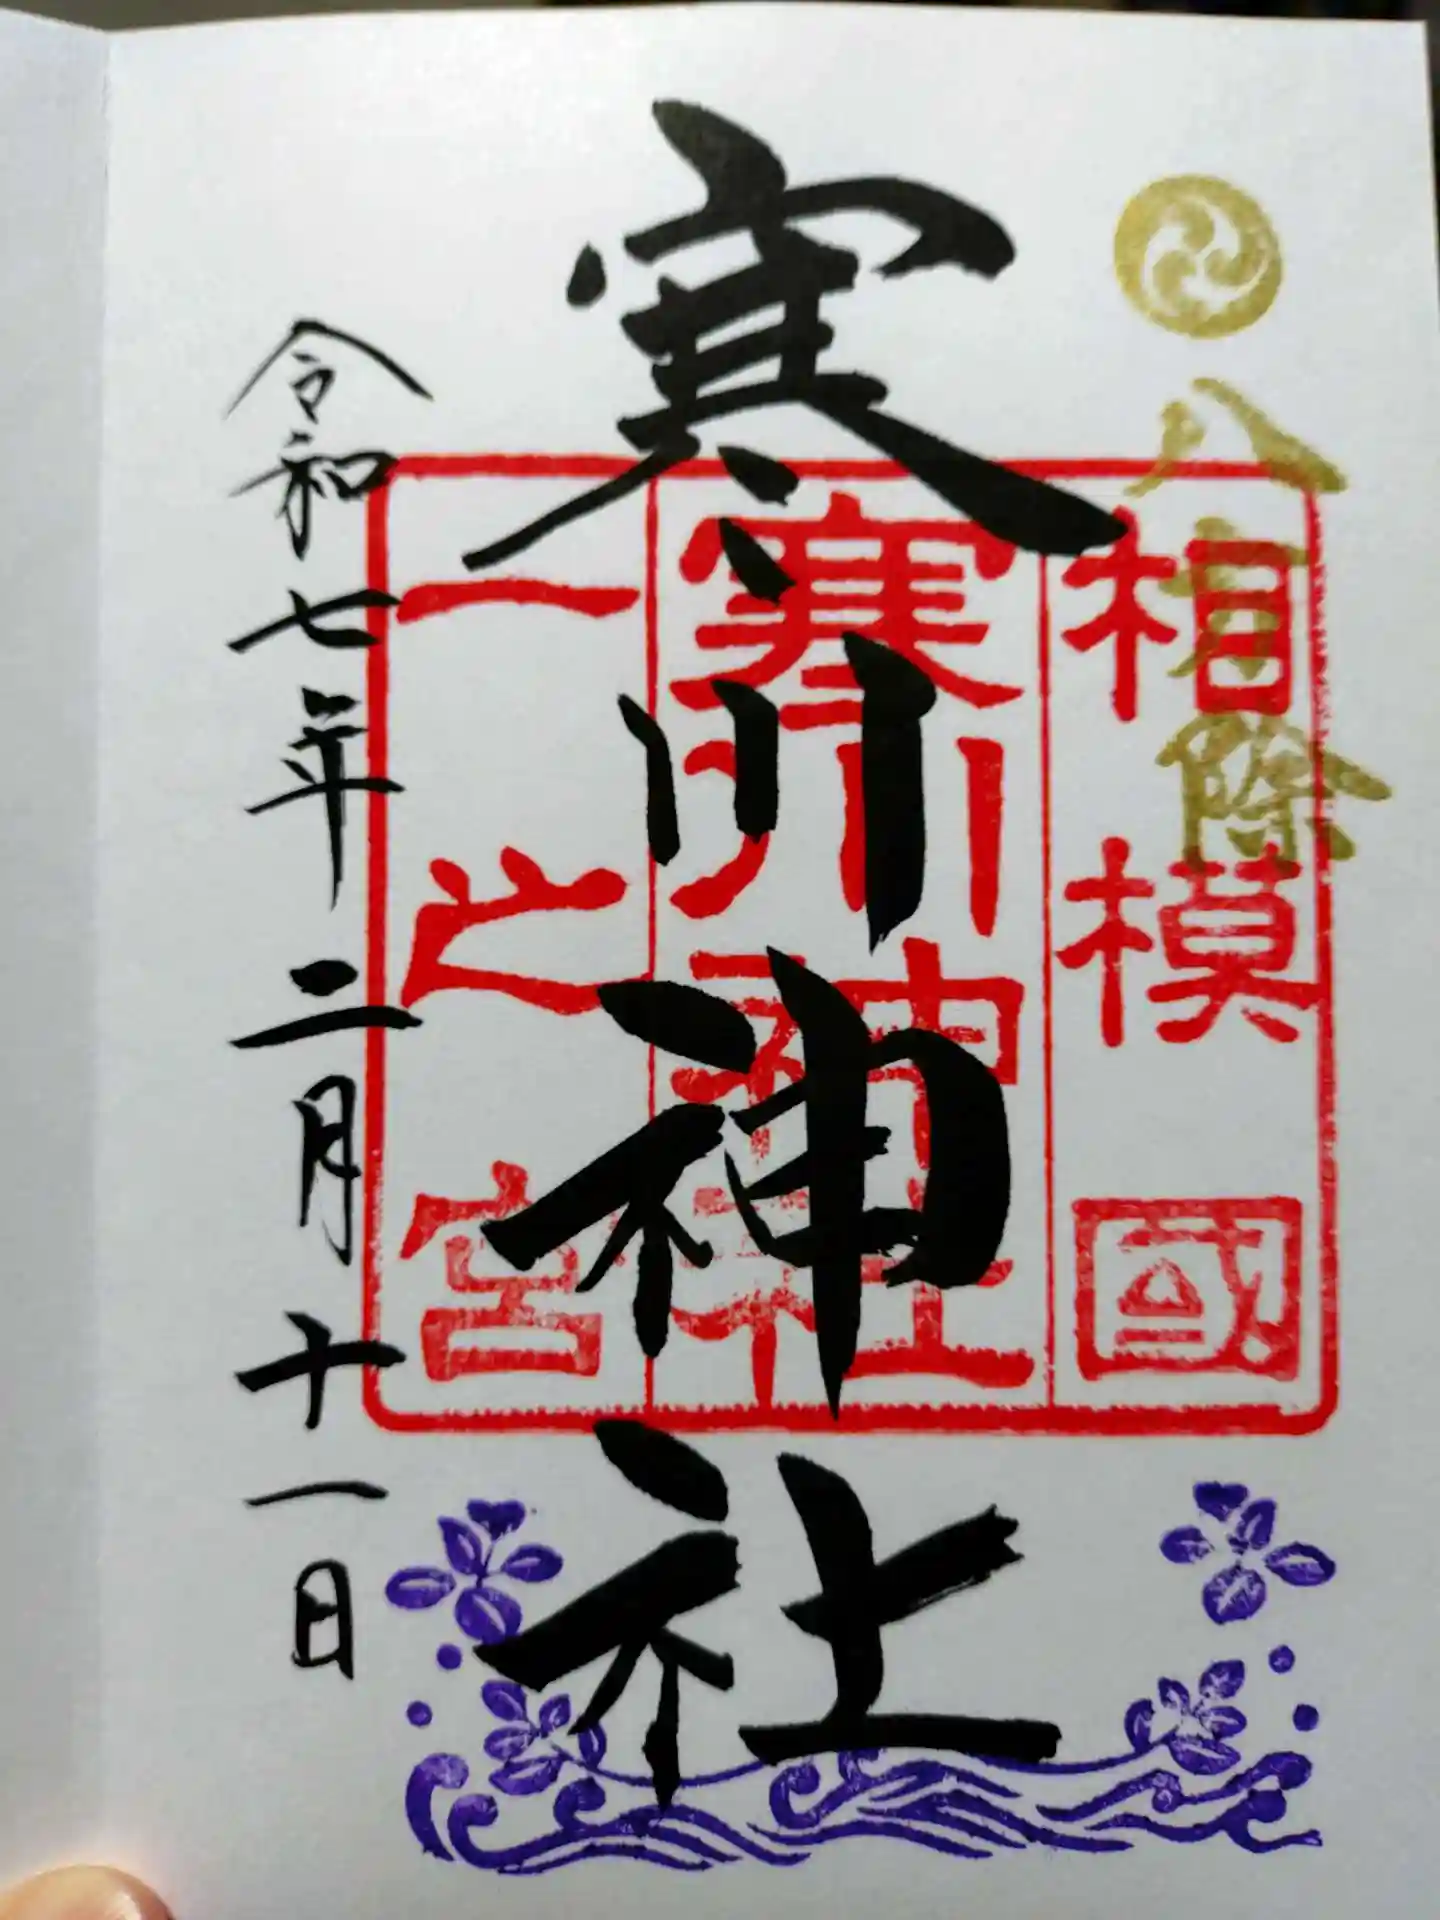 八方除
相模國
寒川神社
寒川神社
一之宮
令和七年二月十一日